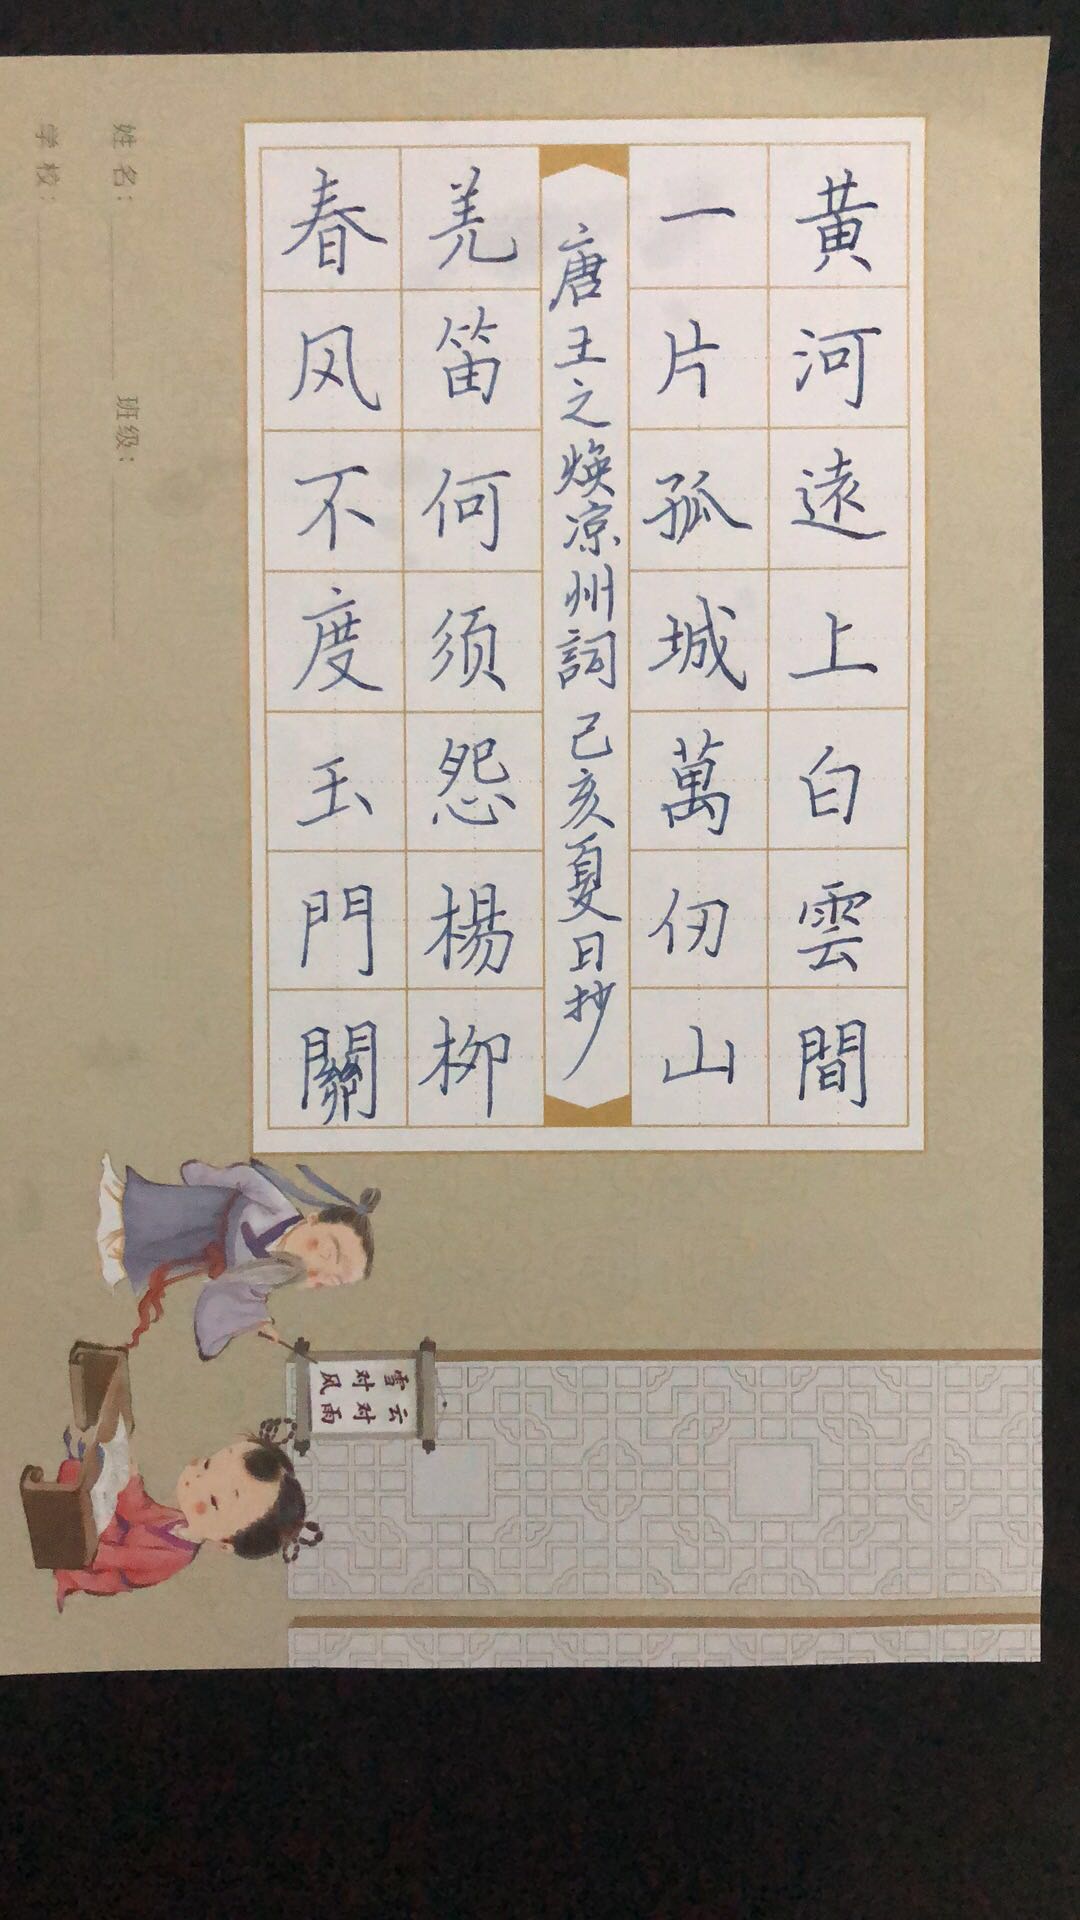 黃河遠上白雲間
一片孤城萬仞山
唐王之焕凉州詞 己亥夏日抄
羌笛何须怨楊柳
春风不度玉門關
姓名：
班级：
学校：
云对雨
雪对风